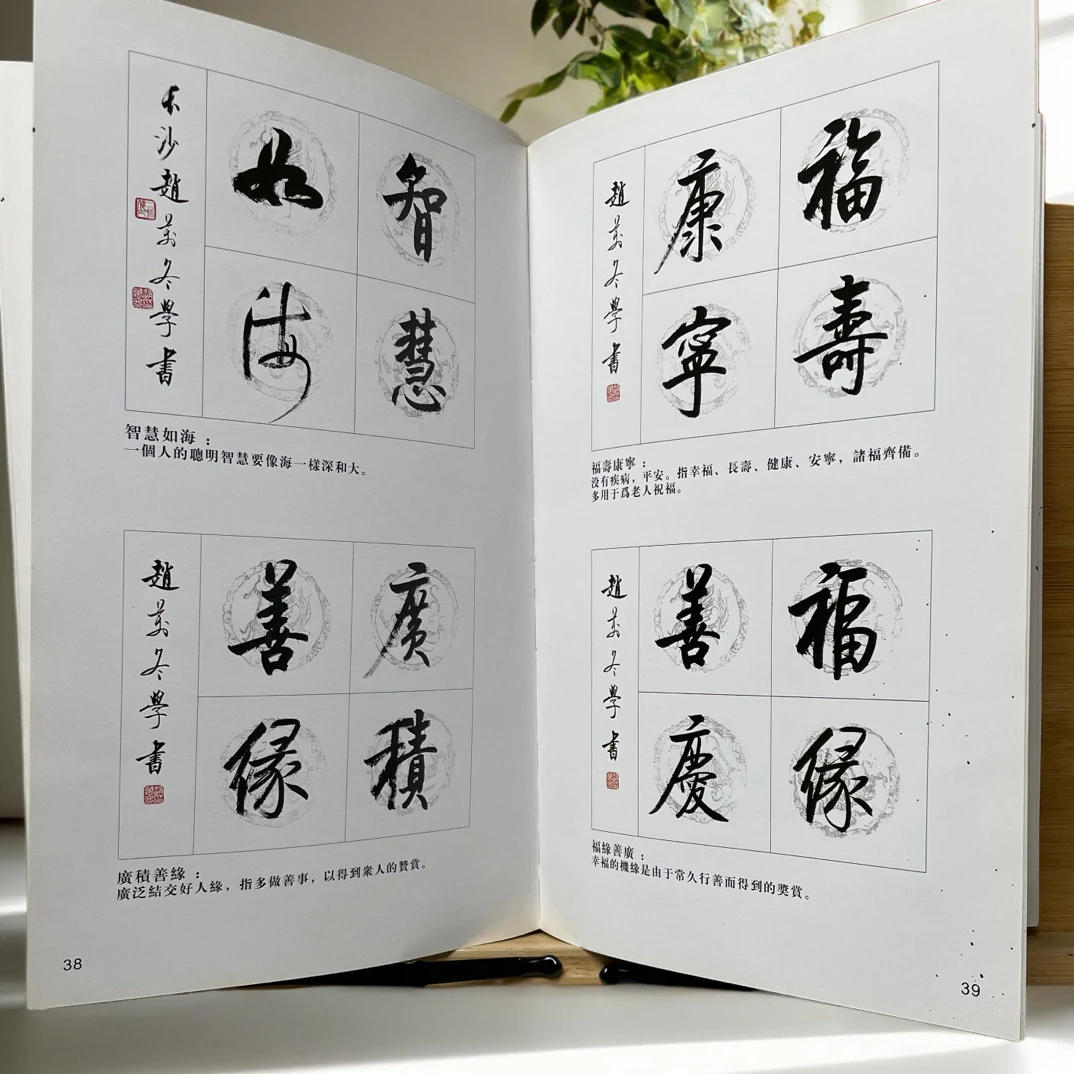 智慧
如海
长沙趙萬冬學書
智慧如海：
一個人的聰明智慧要像海一樣深和大。
廣積
善緣
趙萬冬學書
廣積善緣：
廣泛結交好人緣，指多做善事，以得到衆人的贊賞。
38
福壽
康寧
趙萬冬學書
福壽康寧：
没有疾病，平安。指幸福、長壽、健康、安寧，諸福齊備。
多用于爲老人祝福。
福緣
善慶
趙萬冬學書
福緣善廣：
幸福的機緣是由于常久行善而得到的奬賞。
39